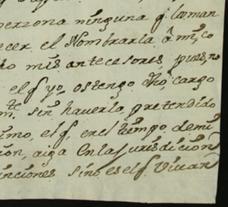 persona ninguna q̃ la man
ecer, el Nombrarla à mi, co
mis antecesores pues, no
el q̃ yo obtengo dho cargo
te sin haverla pretendido
imo, el q̃ en el tiempo de mi
ion, aiga en la jurisdicion
inciones sino es el q̃ vivan